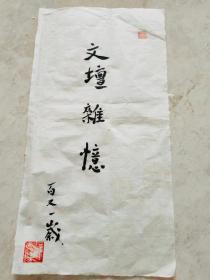 文壇雜憶
百又一歲